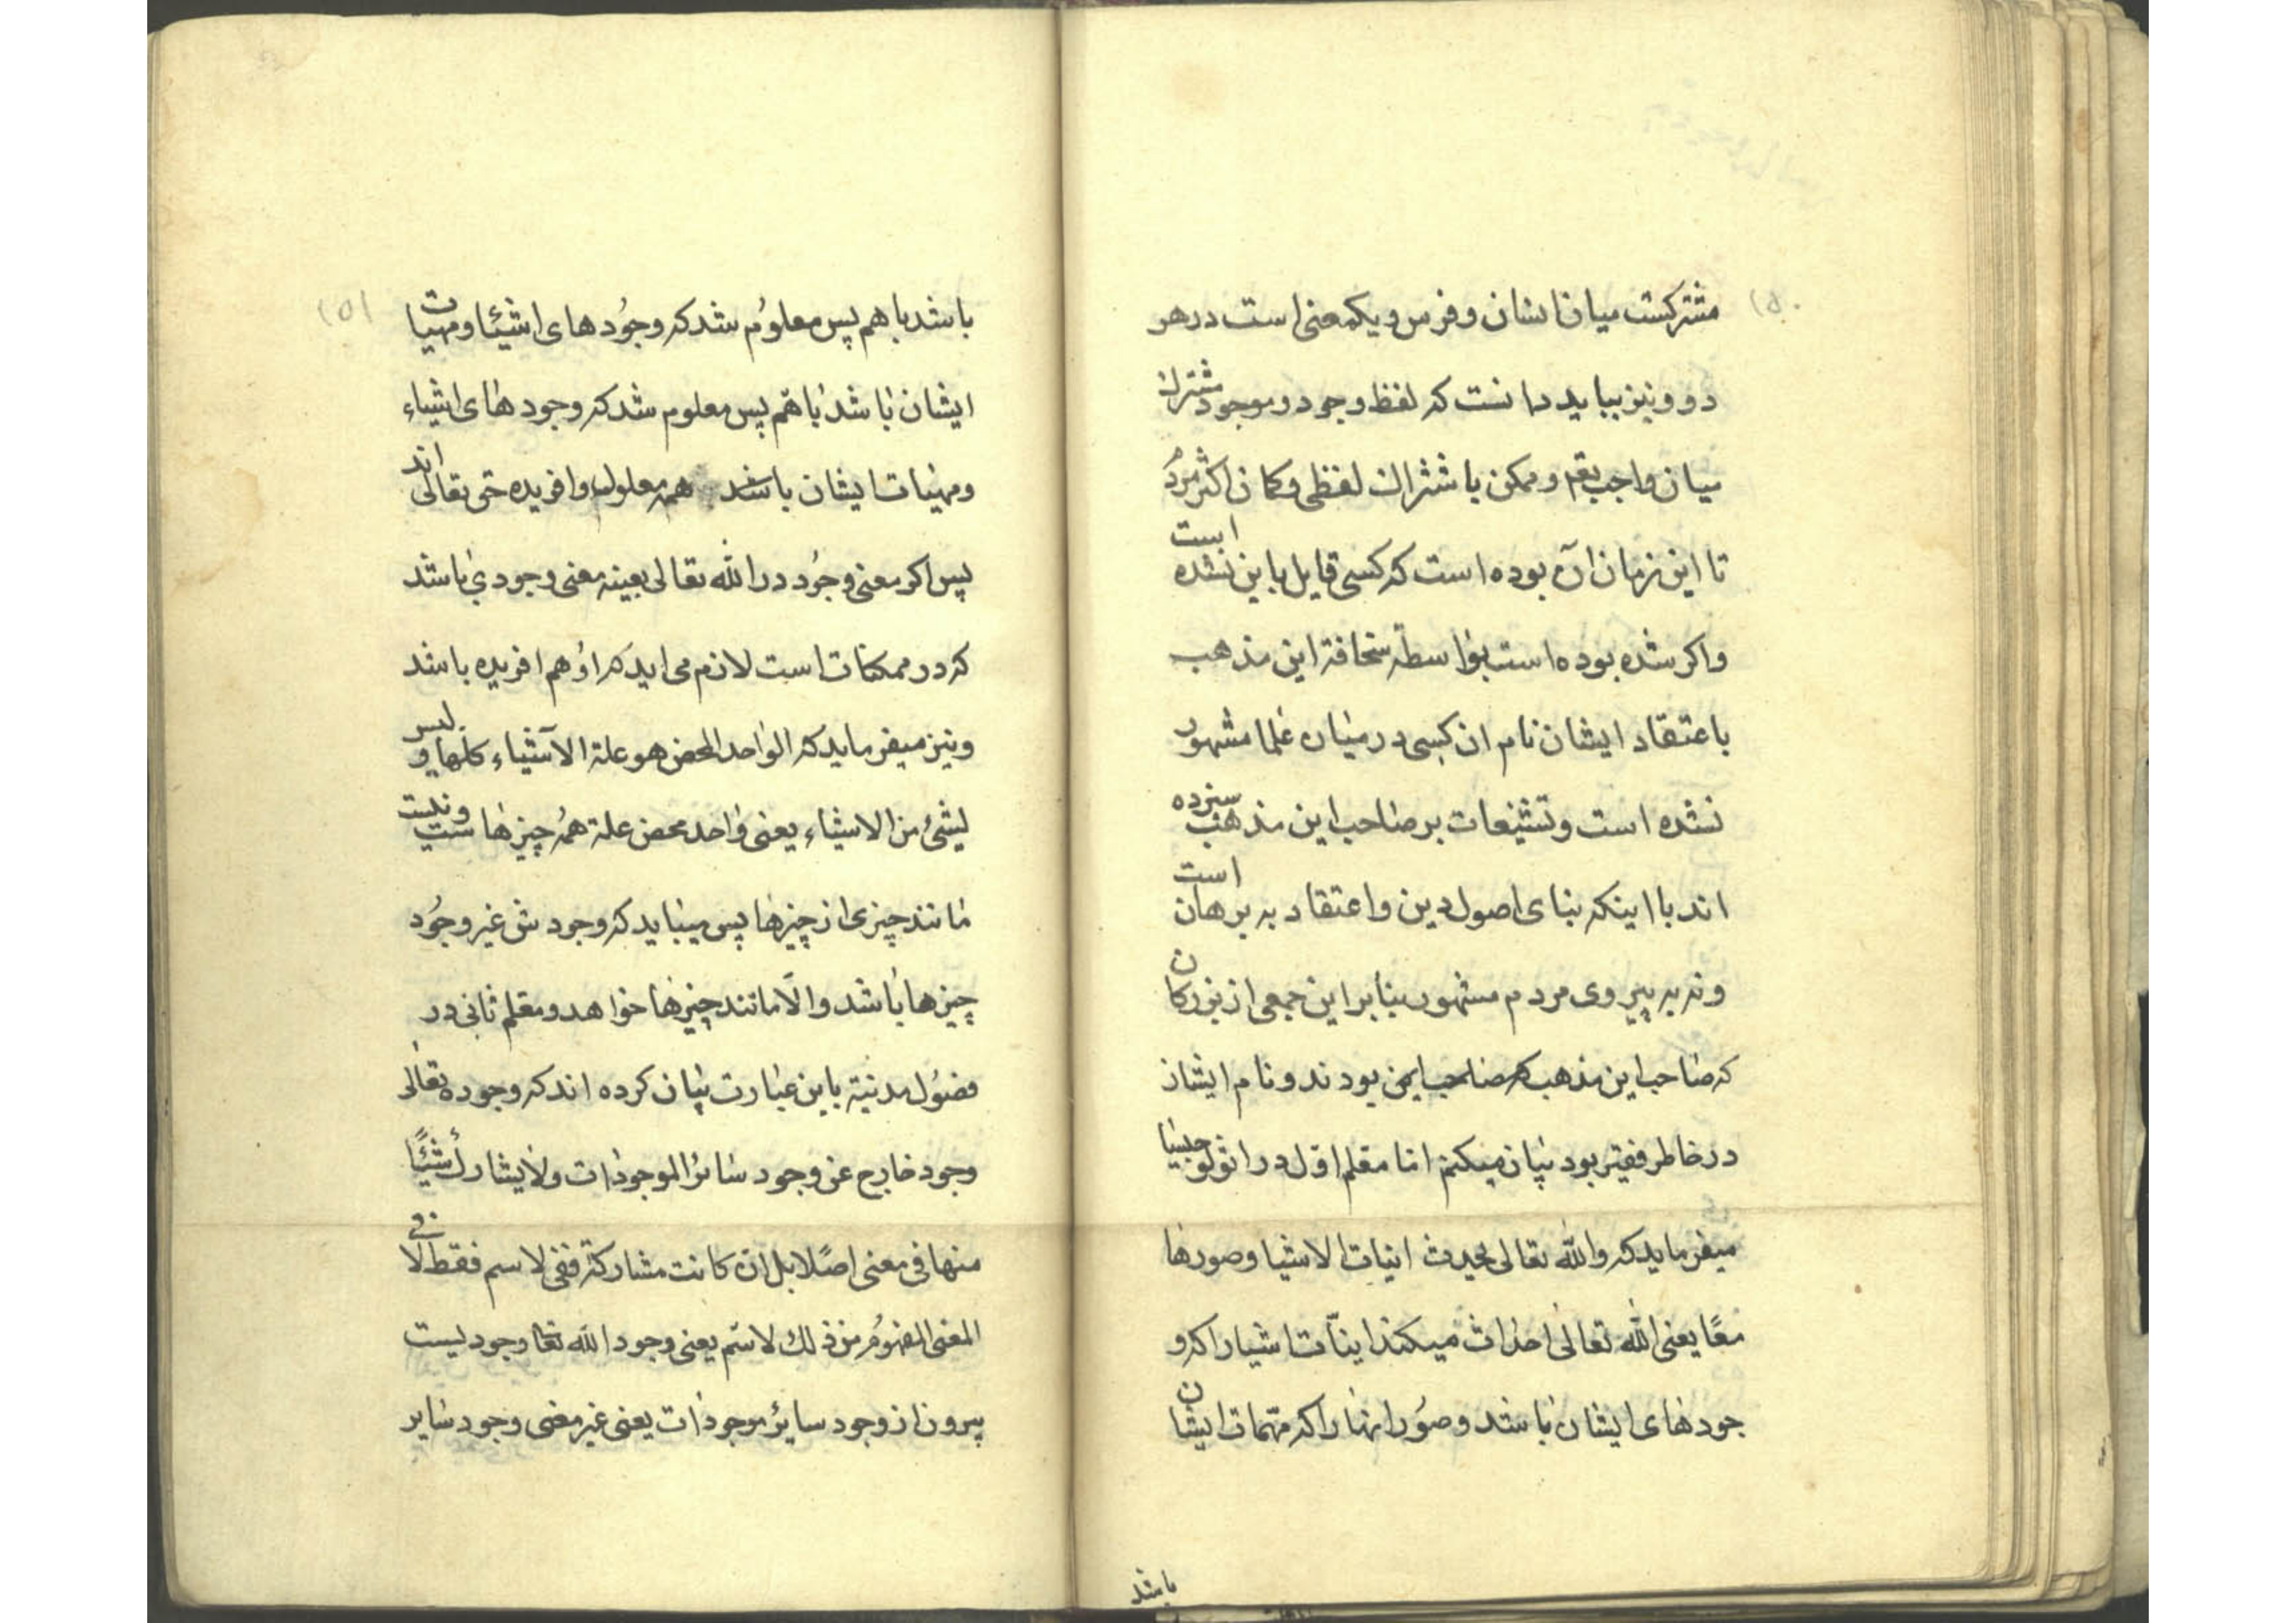 ۱۵۰
مشترکست میان انسان و فرس و یکمعنی است در هر
دو و نیز بباید دانست که لفظ وجود و موجود مشترک
میان واجب تعم و ممکن باشتراک لفظی و کمان اکثر مردم
تا این زمان آن بوده است که کسی قایل باین نشده است
و اکر شده بوده است بواسطه سخافة این مذهب
باعتقاد ایشان نام ان کسی در میان علما مشهور
نشده است و تشنیعات بر صاحب این مذهب میزده
اند با اینکه بنای اصول دین و اعتقاد به برهان است
و نه به پیروی مردم مشهور بنابر این جمعی از بزرکان
که صاحب این مذهب که صاحب ایمن بودند و نام ایشان
در خاطر فقیر بود بیان میکنم اما معلم اول در اثولوجیا
میفرماید که والله تعالی یحدث انیات الاشیا و صورها
معًا یعنی الله تعالی احداث میکند اینّات اشیا را که و
جودهای ایشان باشد و صور انها را که مهّیات ایشان
باشد
۱۵۱
باشد با هم پس معلوم شد که وجودهای اشیئا و مهیات
ایشان باشد با هم پس معلوم شد که وجودهای اشیاء
و مهیات ایشان باشد همه معلول و افریده حق تعالی اند
پس اکر معنی وجود در الله تعالی بعینه معنی وجودی باشد
که در ممکنات است لازم می اید که او هم افریده باشد
و نیز میفرماید که الواحد المحض هو علة الاشیاء کلها و لیس
لیشئ من الاشیاء یعنی واحد محض علة همه چیزهاست و نیست
مانند چیزی از چیزها پس میباید که وجودش غیر وجود
چیزها باشد و الّا مانند چیزها خواهد و معلم ثانی در
فصول مدنیة باین عبارت بیان کرده اند که وجوده تعالی
وجود خارج عن وجود سائر الموجودات ولا یشارک شیئًا
منها فی معنی اصلًا بل ان کانت مشارکة ففی لاسم فقط لا فی
المعنی المفهوم من ذلک لاسم یعنی وجود الله تعا وجودیست
بیرون از وجود سایر موجودات یعنی غیر معنی وجود سایر